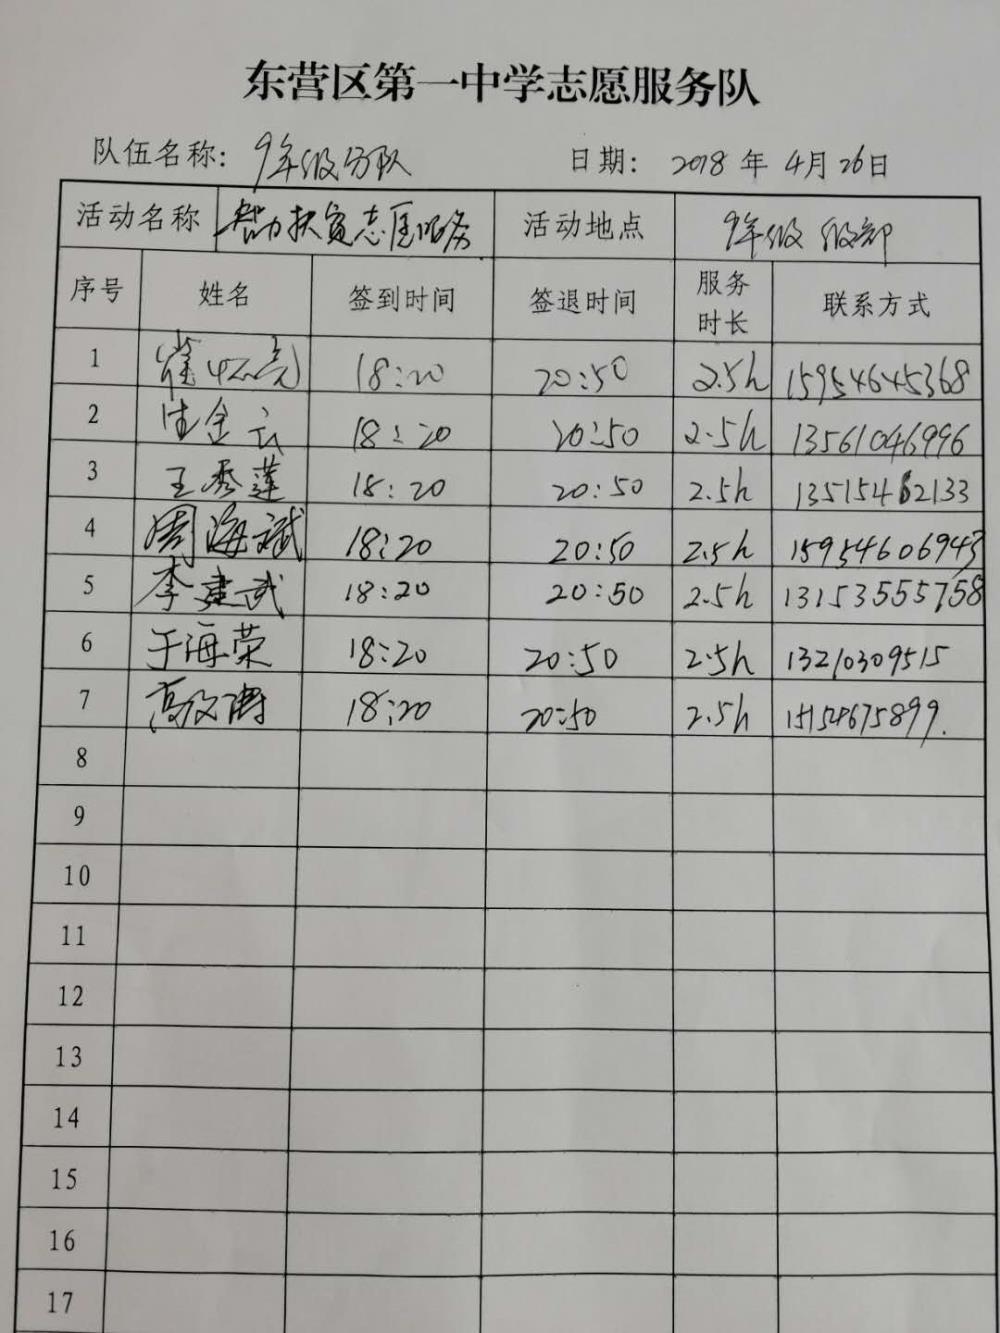 东营区第一中学志愿服务队
队伍名称: 9年级分队 日期: 2018年4月26日
活动名称 智力扶贫志愿服务 活动地点 9年级级部
序号 姓名 签到时间 签退时间 服务时长 联系方式
1 崔怀亮 18:20 20:50 2.5h 15954645368
2 金云 18:20 20:50 2.5h 13561046996
3 王秀莲 18:20 20:50 2.5h 13515462133
4 周海斌 18:20 20:50 2.5h 15954606943
5 李建武 18:20 20:50 2.5h 13153555758
6 于海荣 18:20 20:50 2.5h 13210309515
7 高 18:20 20:50 2.5h
8
9
10
11
12
13
14
15
16
17